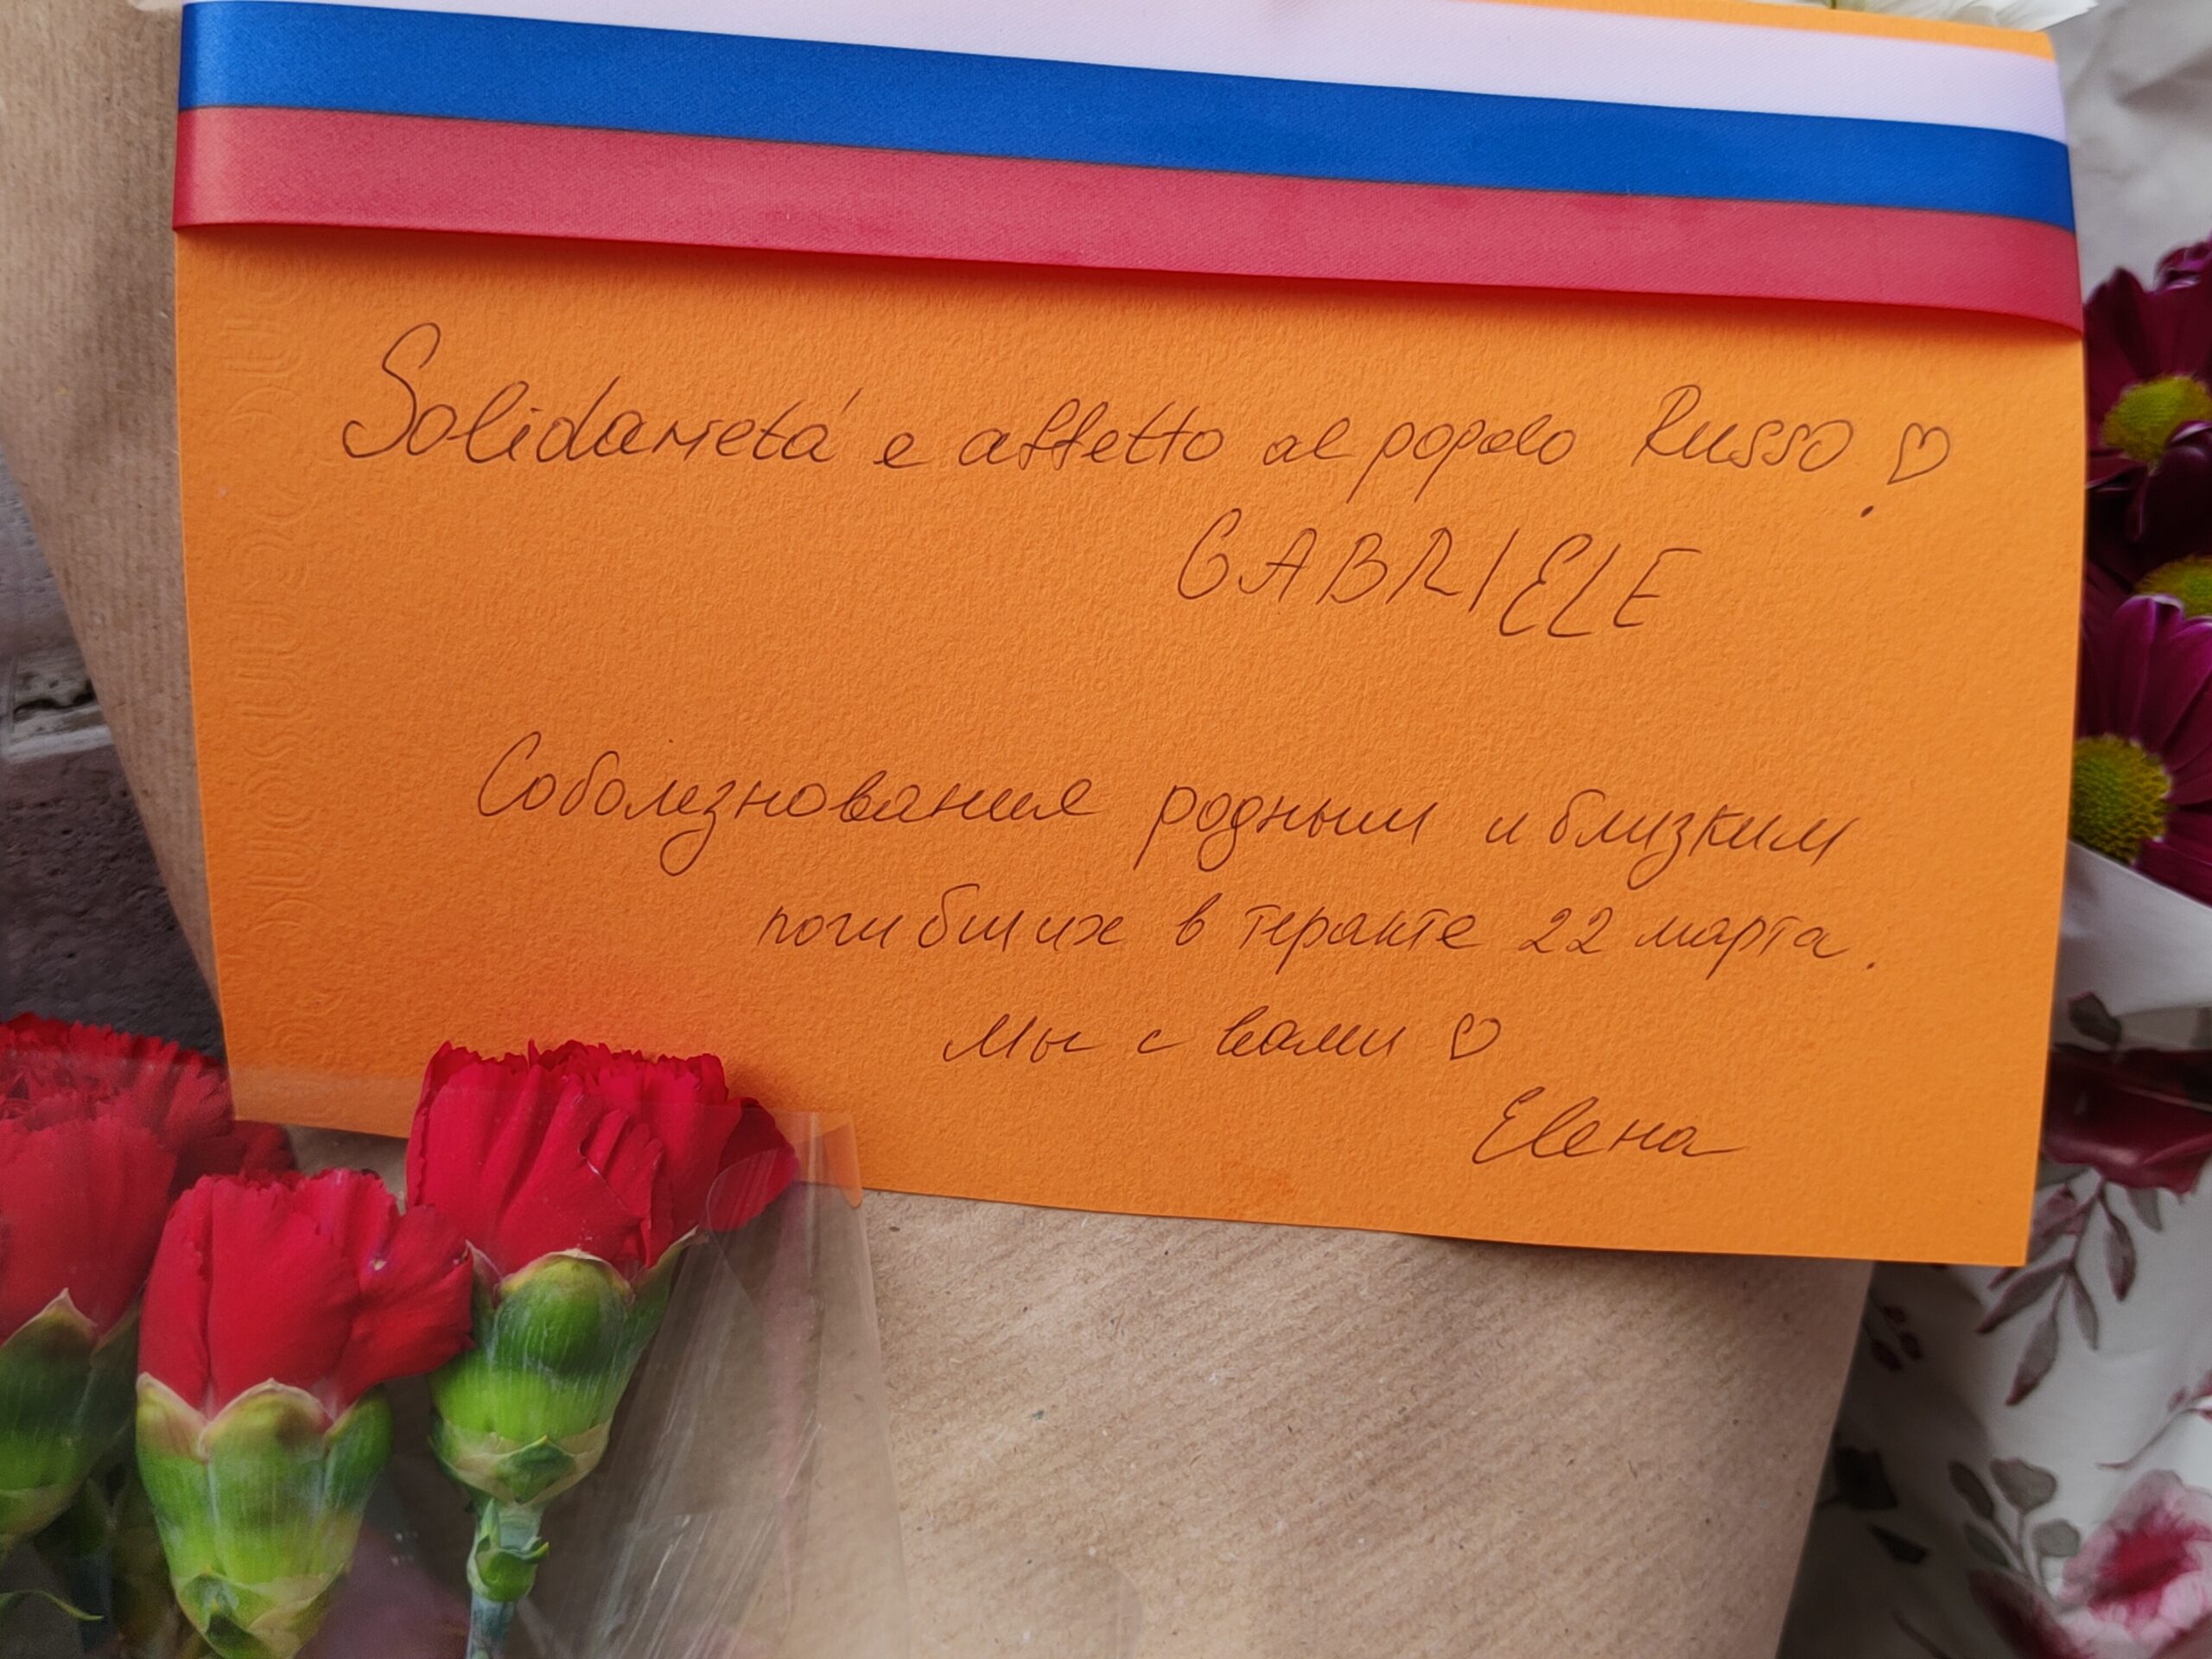 Solidarietá e affetto al popolo Russo. ♡
GABRIELE
Соболезнования родным и близким
погибших в теракте 22 марта.
Мы с вами ♡
Elена